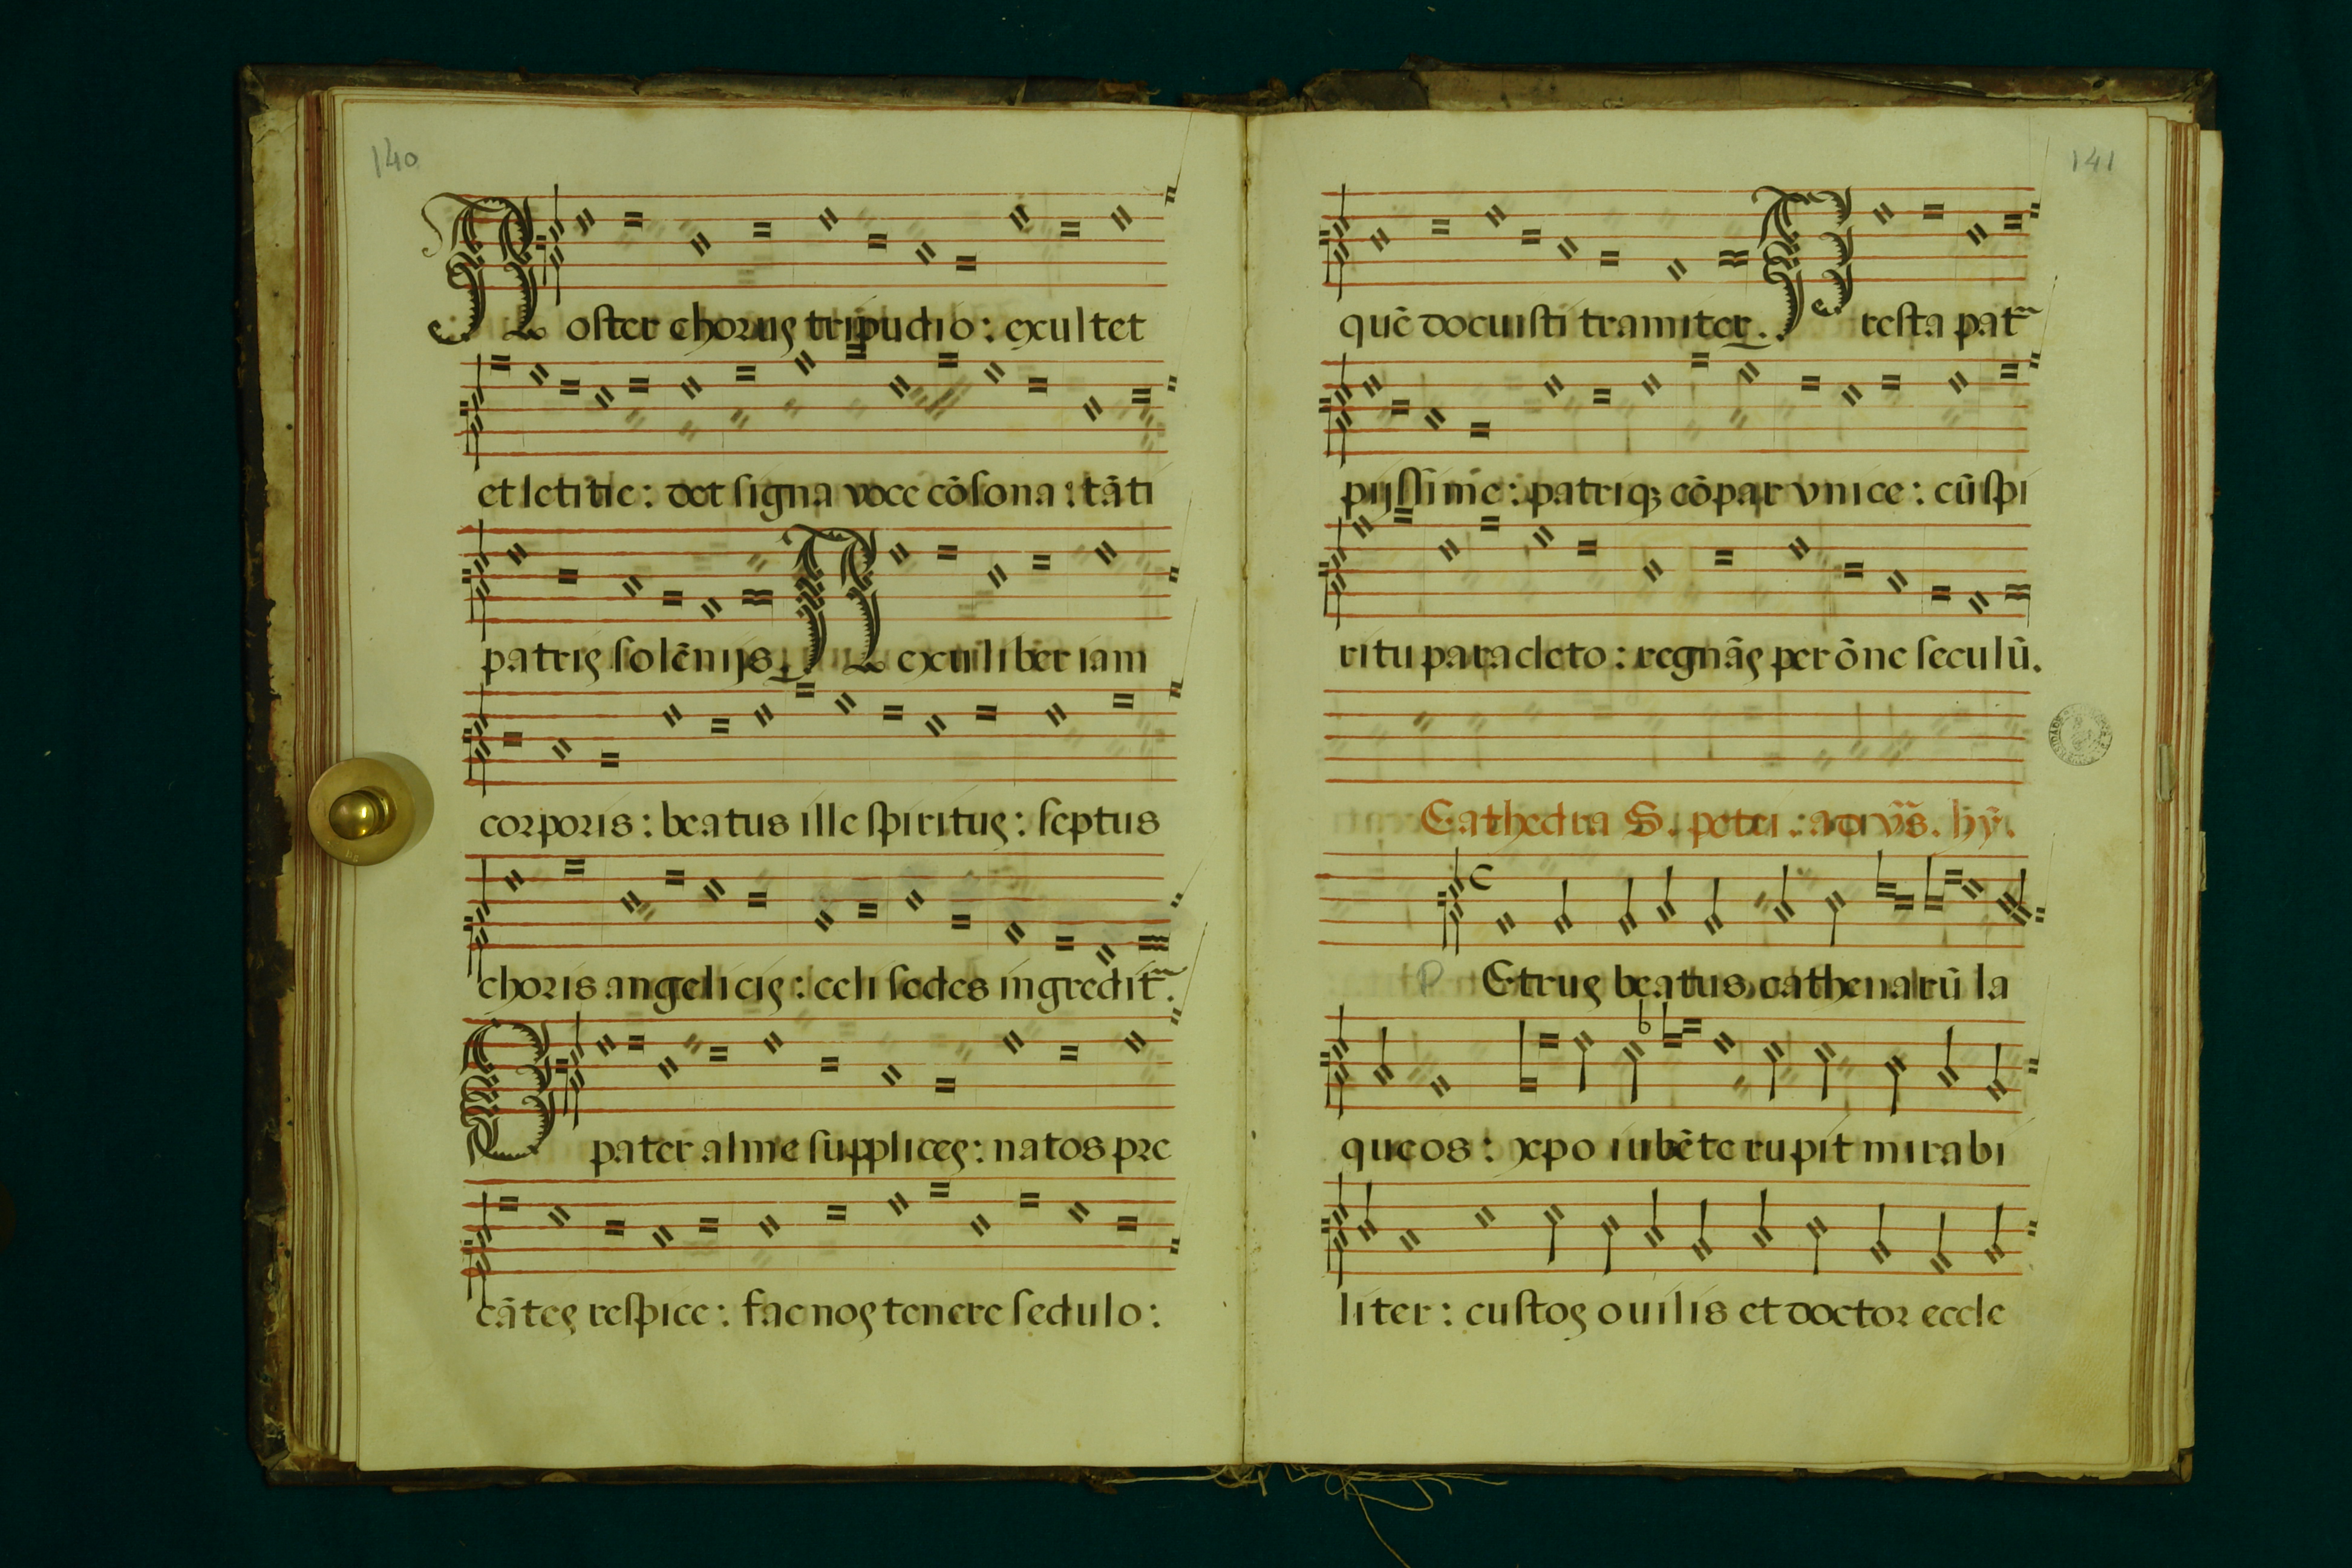 140
Noster chorus tripudio : exultet
et letitie : det signa voce cõsona : tãti
patris solẽnijs. Nexui liber iam
corporis : beatus ille spiritus : septus
choris angelicis : celi sedes ingredit᷑.
O pater alme supplices : natos pre
cãtes respice : fac nos tenere sedulo :
141
quẽ docuisti tramiter. Presta pat᷑
pijssime : patriqȝ cõpar vnice : cũ spi
ritu paracleto : regnãs per õne seculũ.
Cathedra S. petri : ad vr̃s. hỹ.
P Etrus beatus cathenarũ la
queos : xpo iubẽte rupit mirabi
liter : custos ouilis et doctor eccle